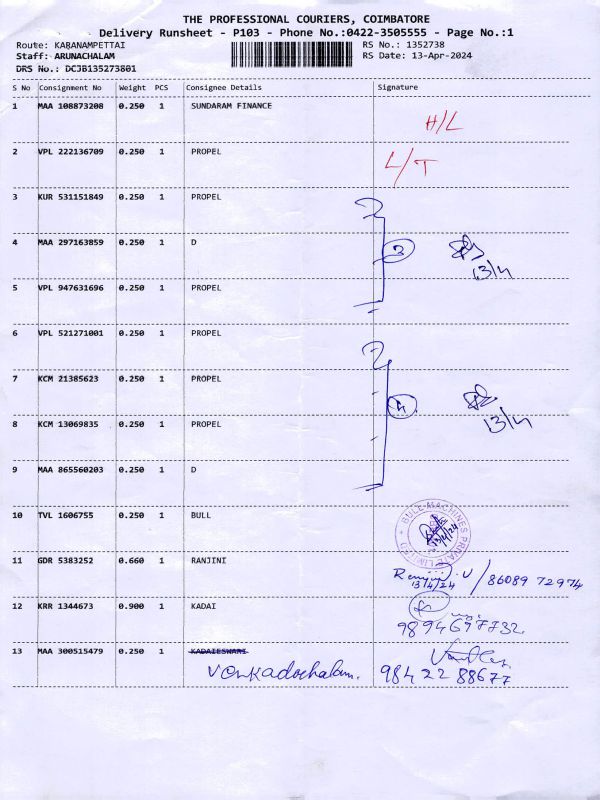 THE PROFESSIONAL COURIERS, COIMBATORE
Delivery Runsheet - P103 - Phone No.:0422-3505555 - Page No.:1
Route: KARANAMPETTAI RS No.: 1352738
Staff: ARUNACHALAM RS Date: 13-Apr-2024
DRS No.: DCJB135273801
S No Consignment No Weight PCS Consignee Details Signature
1 MAA 108873208 0.250 1 SUNDARAM FINANCE H/L
2 VPL 222136709 0.250 1 PROPEL L/T
3 KUR 531151849 0.250 1 PROPEL
4 MAA 297163859 0.250 1 D 3 13/4
5 VPL 947631696 0.250 1 PROPEL
6 VPL 521271001 0.250 1 PROPEL
7 KCM 21385623 0.250 1 PROPEL 4 13/4
8 KCM 13069835 0.250 1 PROPEL
9 MAA 865560203 0.250 1 D
10 TVL 1606755 0.250 1 BULL BULL MACHINES PRIVATE LIMITED 13/4/24
11 GDR 5383252 0.660 1 RANJINI Ranjini.U / 86089 72974
13/4/24
12 KRR 1344673 0.900 1 KADAI
9894697732
13 MAA 300515479 0.250 1 KADAIESWARI
Venkadachalam. 98422 88677